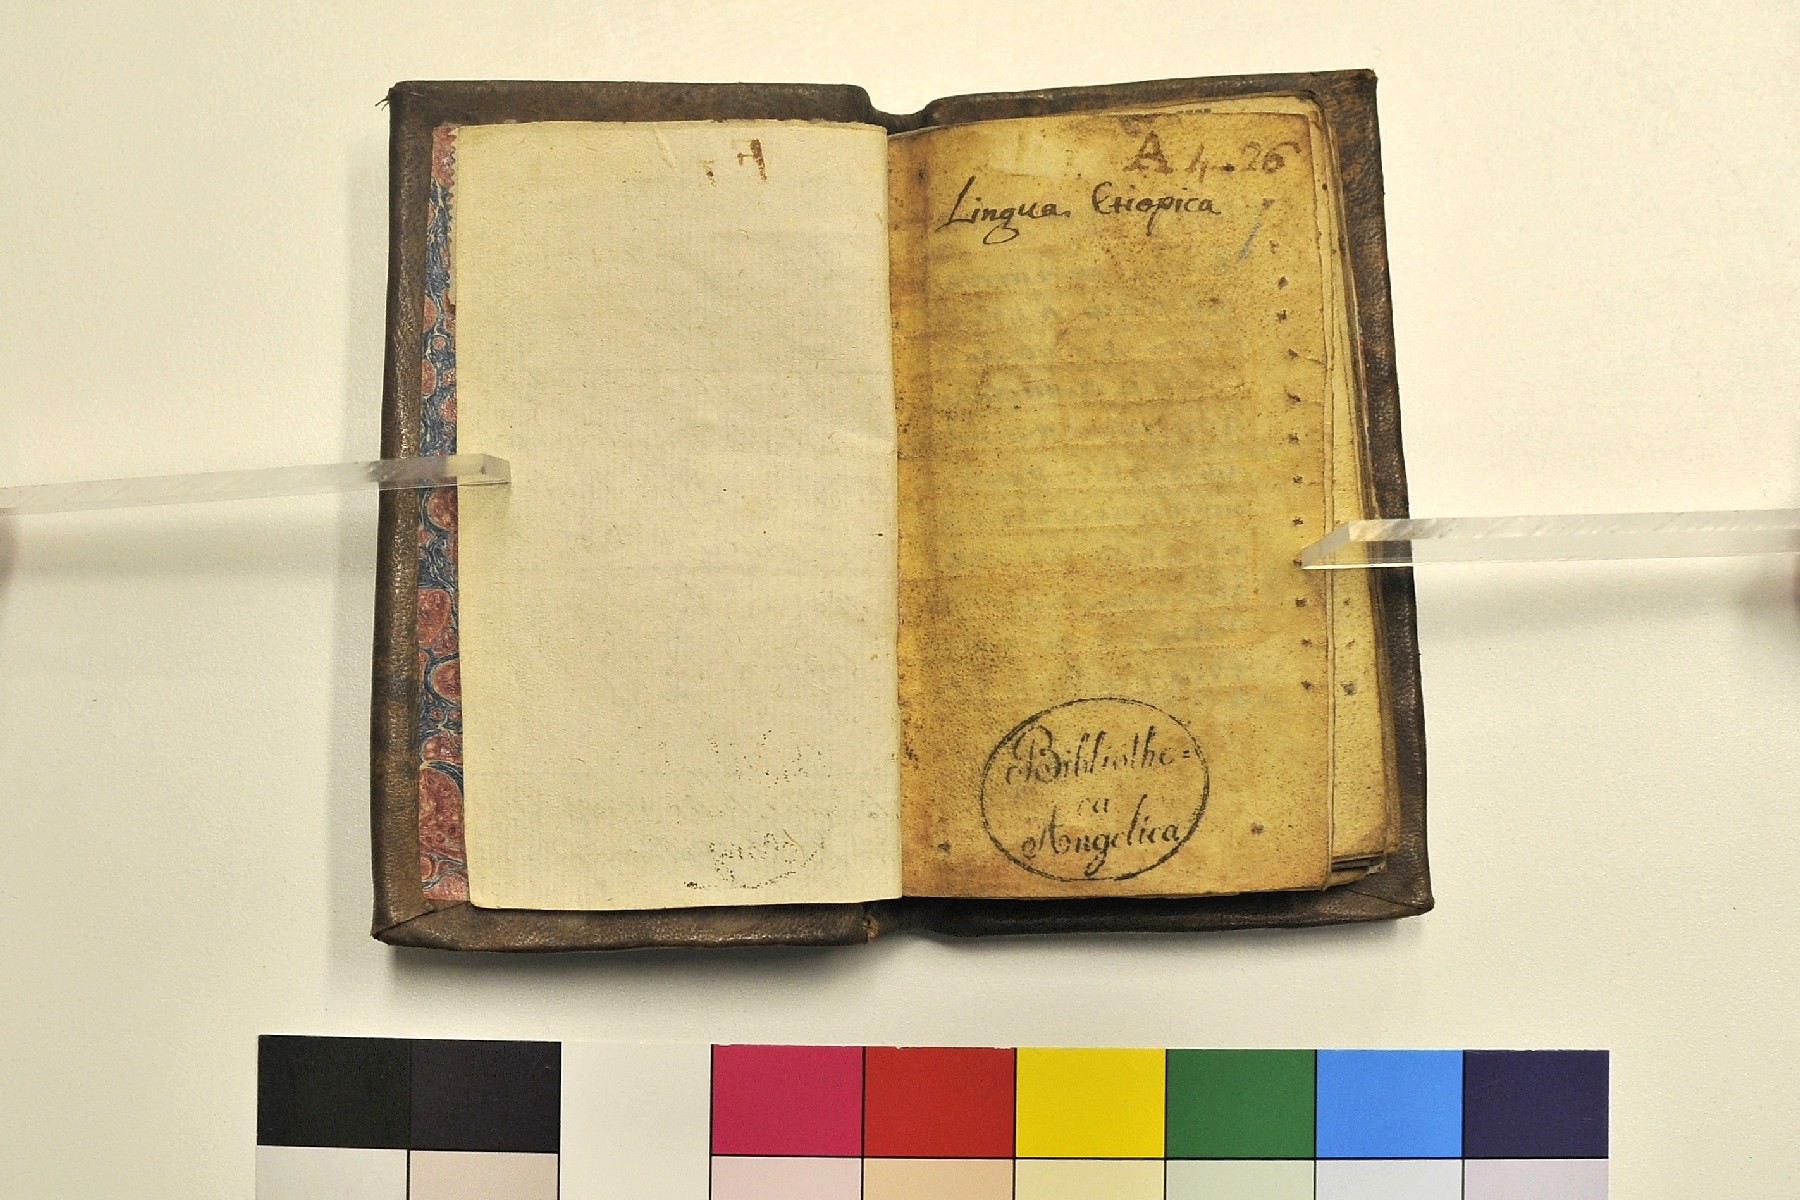 A 4. 26
Lingua Etiopica
Bibliothe=
ca
Angelica